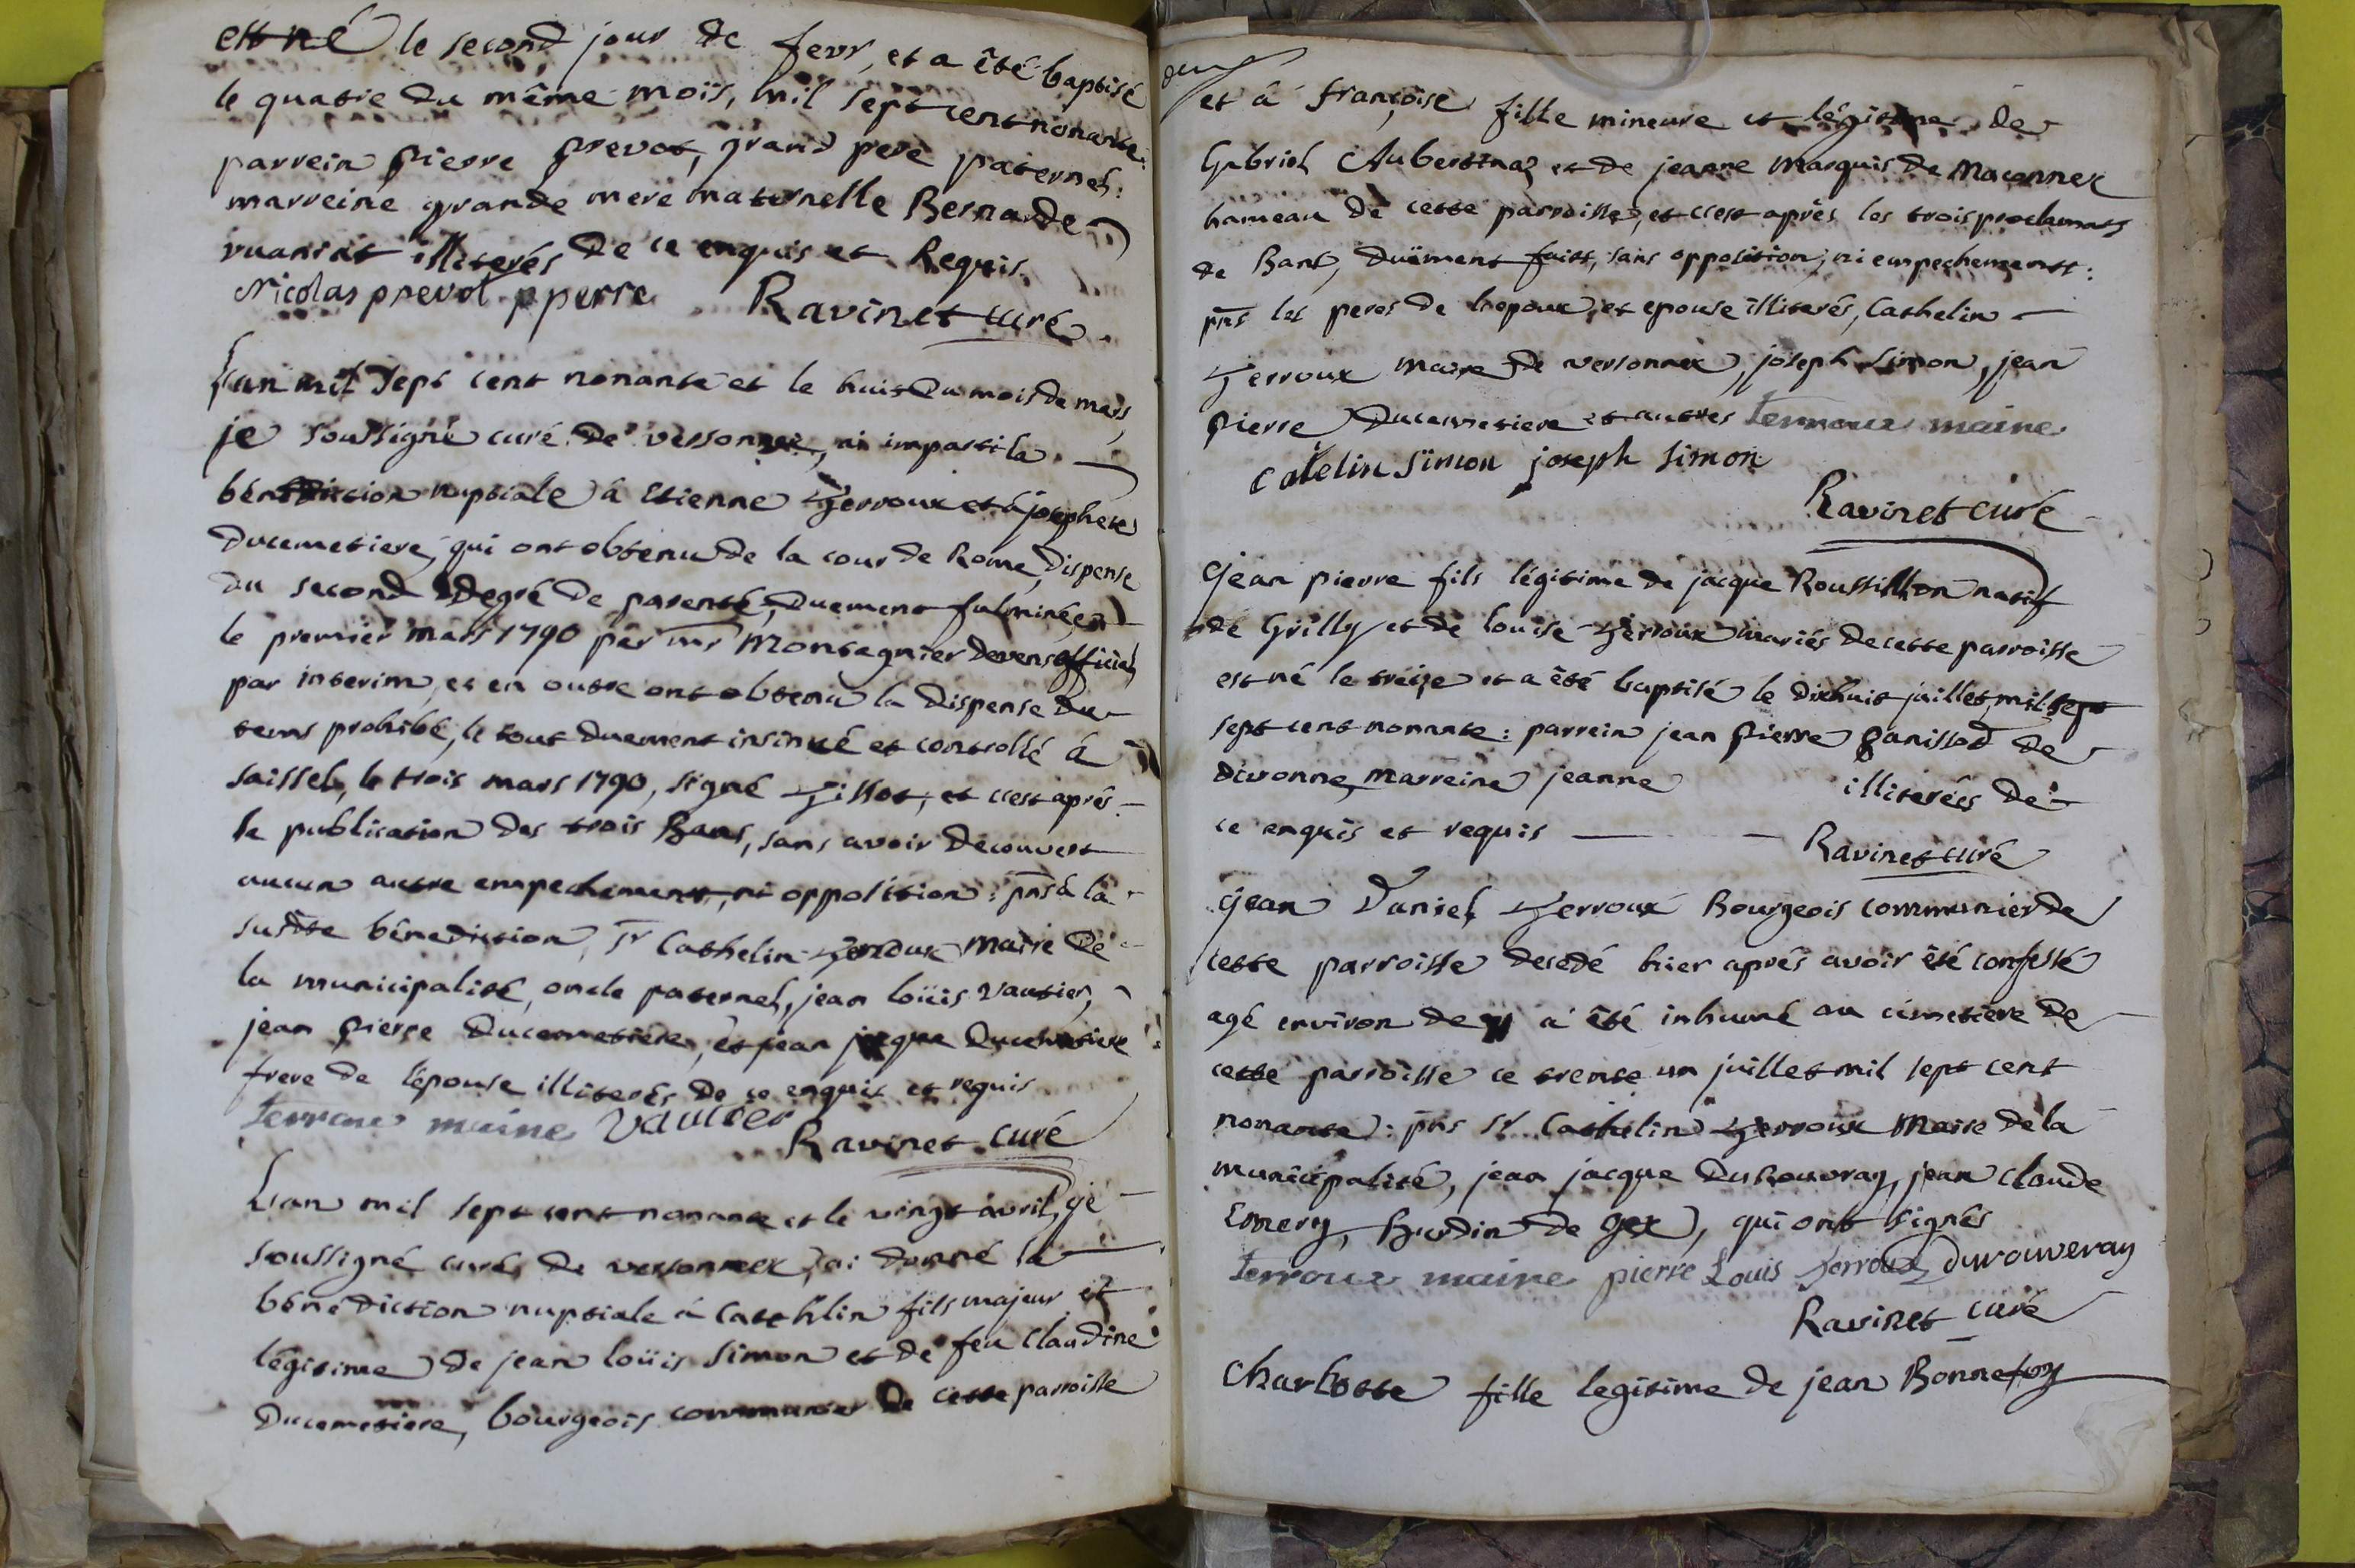 est né le second jour de fevr, et a êté baptisé
le quatre du même mois, mil sept cent nonante:
parrein pierre prevot, grand pere paternel:
marreine grande mere maternelle Bernarde
illiterés de ce enquis et Requis.
Nicolas prevot p perre Ravinet curé
Lan mil sept cent nonante et le huit du mois de mars,
je soussigné curé de versonnex, ai imparti la
bénédiction nuptiale â Etienne Terroux et â josephete
Ducemetiere, qui ont obtenu de la cour de Rome, dispense
du second degré de parenté, duement fulminée
le premier mars 1790 par mr Montagnier official
par interim, et en outre ont obtenu la dispense du
tems prohibé, le tout duement insinué et controllé â
saissel, le trois mars 1790, signé et c'est aprés
la publication des trois Bans, sans avoir decouvert
aucun autre empechement, ni opposition: pns â la
susdte bénediction, sr Cathelin Terroux maire de
la municipalité, oncle paternel, jean loüis vautier,
jean pierre Ducemetiere, et jean jacque Ducemetiere
frere de l'épouse illiterés de ce enquis et requis
terroux maire vautier Ravinet curé
Lan mil sept cent nonante et le vingt avril, je
soussigné curé de versonnex, ai donné la
bénédiction nuptiale â Catehlin fils majeur et
légitime de jean loüis simon et de feu claudine
Ducemetiere, bourgeois communier de cette parroisse
et â françoise fille mineure et légitime de
Gabriel Aubertinaz et de jeanne Marquis de Maconnex
hameau de cette parroisse, et c'est aprês les trois proclamats
de Bans, duëment faits, sans opposition, ni empechement:
pns les peres de lepoux, et epouse illiterés, Cathelin
Terroux maire de versonnex, joseph simon, jean
pierre Ducemetiere et autres terroux maire
catelin simon joseph simon
Ravinet curé
jean pierre fils légitime de jacque Roussillon natif
de Grilly et de louise Terroux mariés de cette parroisse
est né le treize et a êté baptisé le dixhuit juillet, mil sept
sept cent nonante: parrein jean pierre panissod de
divonne, marreine jeanne illiterées de
ce enquis et requis Ravinet curé
jean Daniel Terroux Bourgeois communier de
cette parroisse decedé hier aprés avoir êté confessé
agé environ de a êté inhumé au cimetiere de
cette parroisse ce trente un juillet mil sept cent
nonante: pns sr Cathelin Terroux Maire de la
municipalité, jean jacque Durouvray, jean claude
Emery, hardin de gex, qui ont signés
terroux maire pierre Louis Terroux Durouveray
Ravinet curé
Charlotte fille legitime de jean Bonnefoy